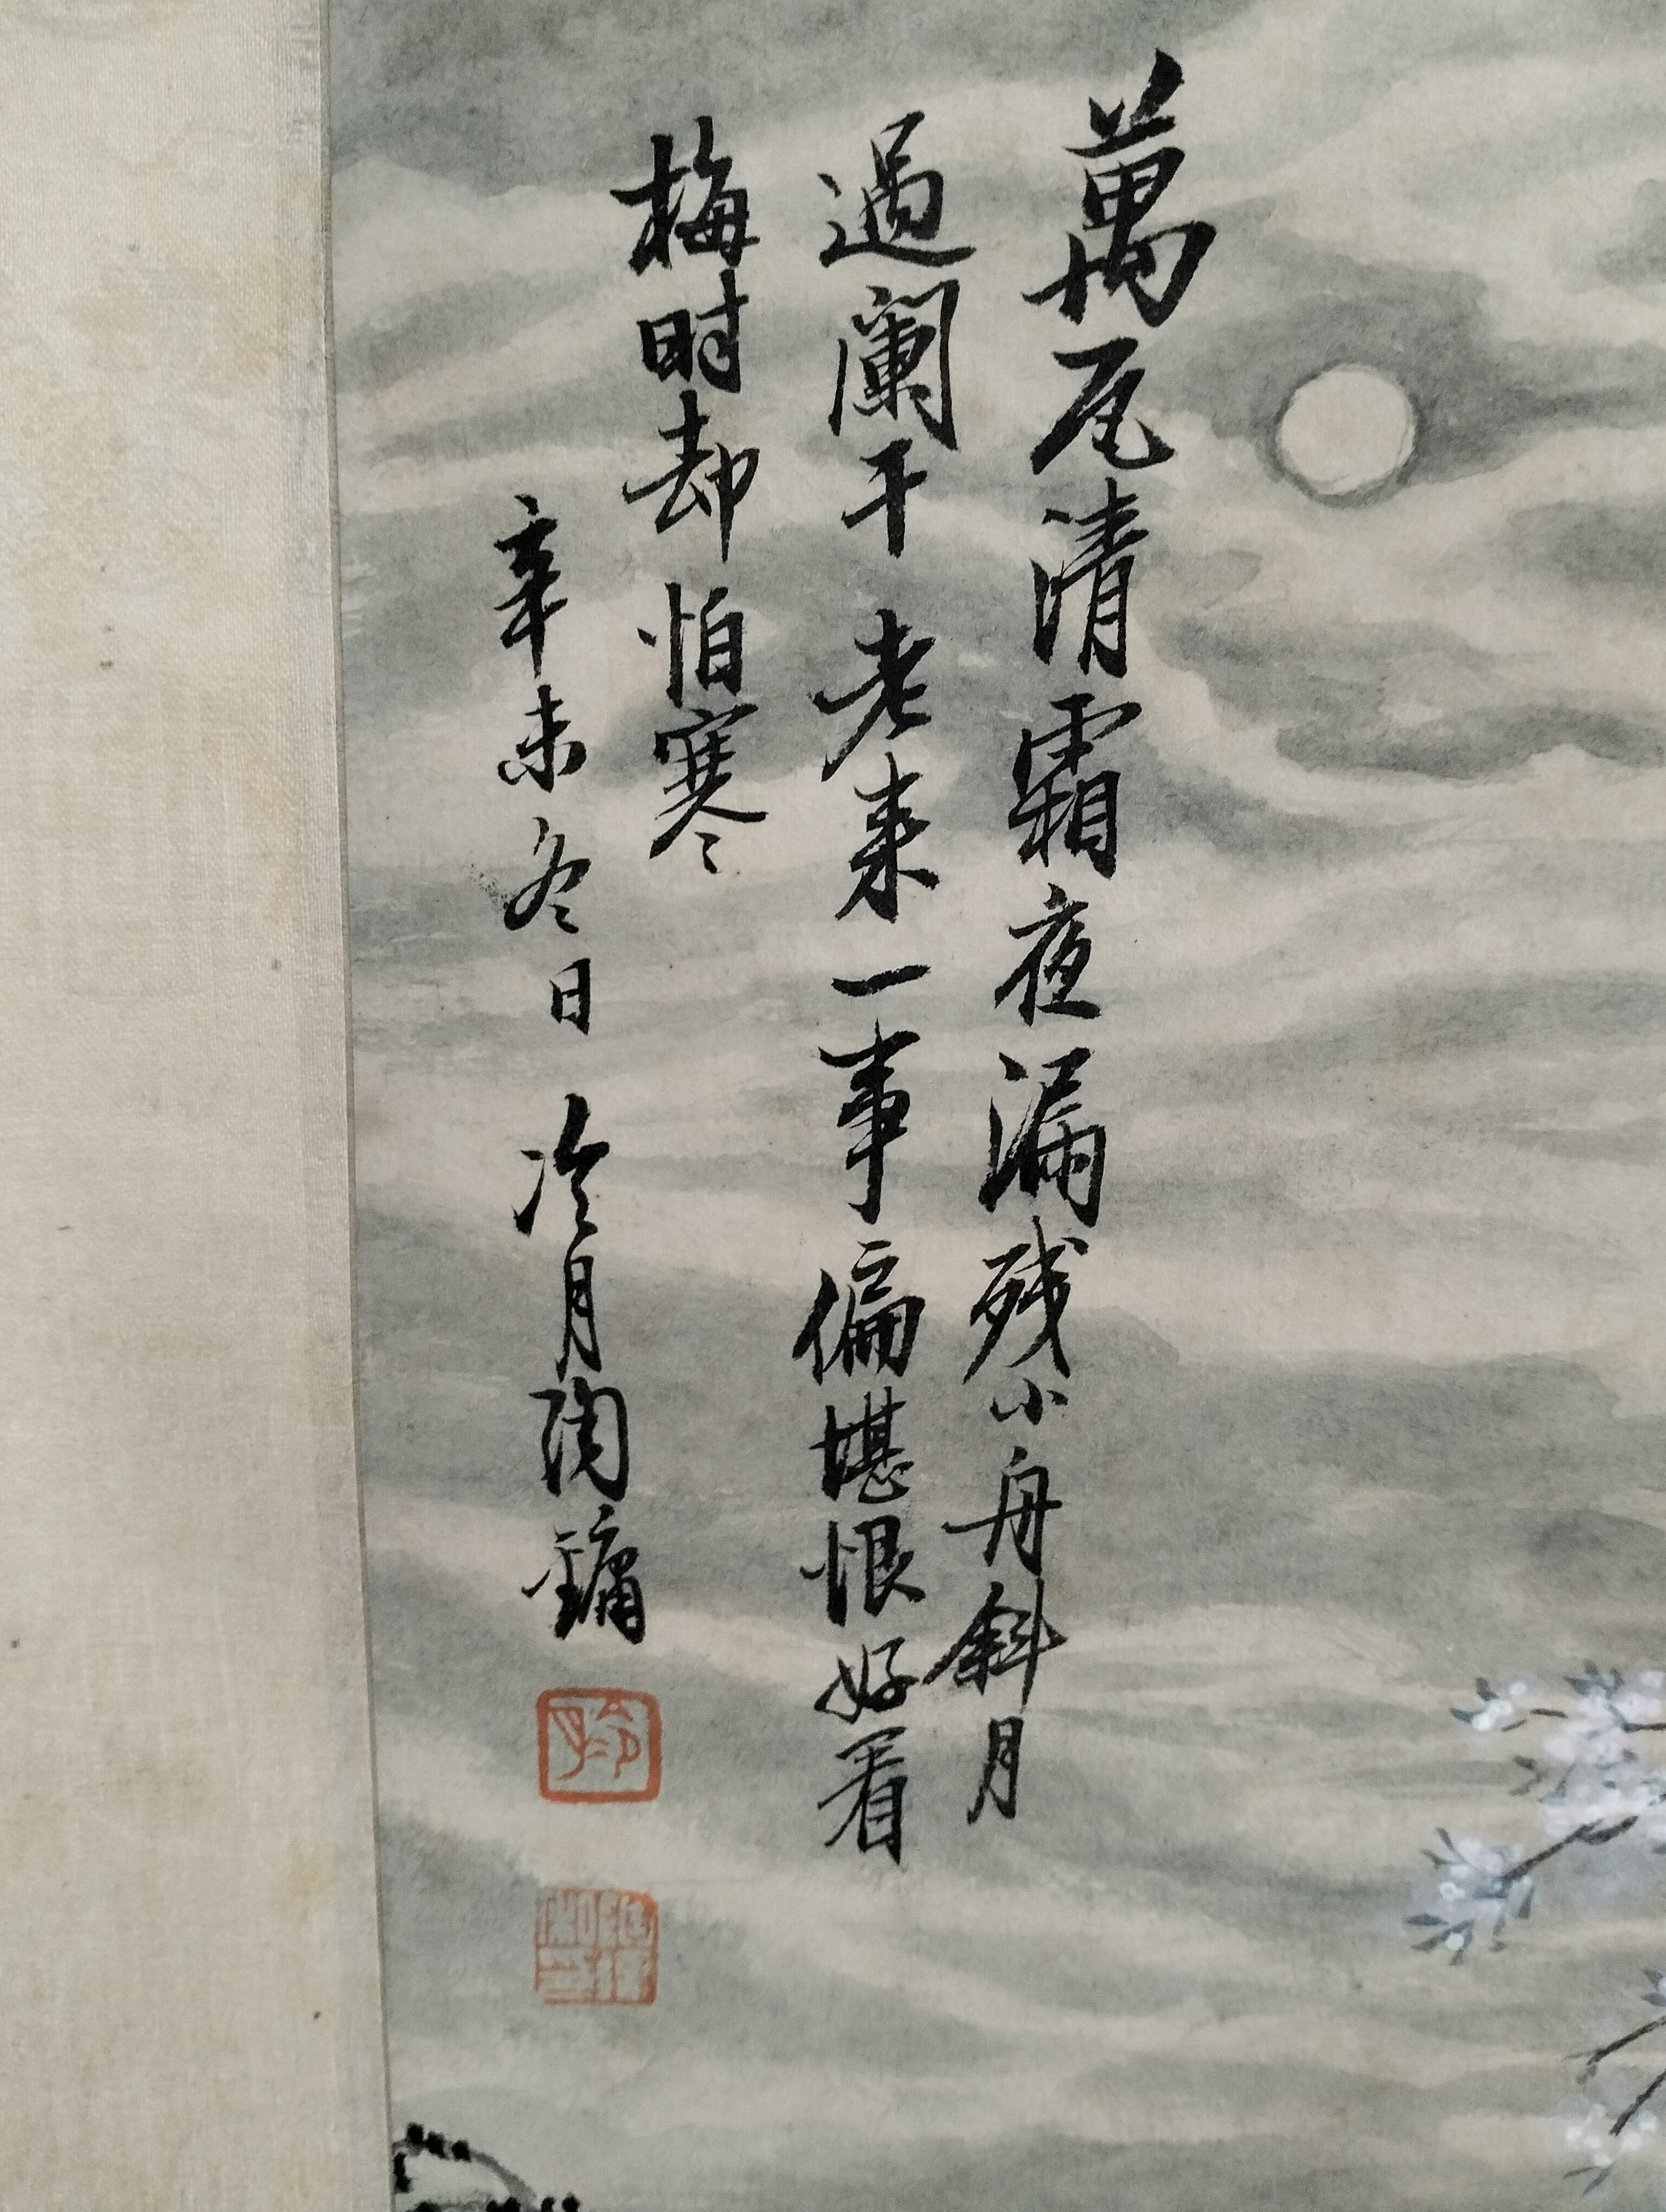 萬瓦清霜夜漏残小舟斜月
過闌干老来一事偏堪恨好看
梅时却怕寒
辛未冬日 冷月陶鏞
冷月